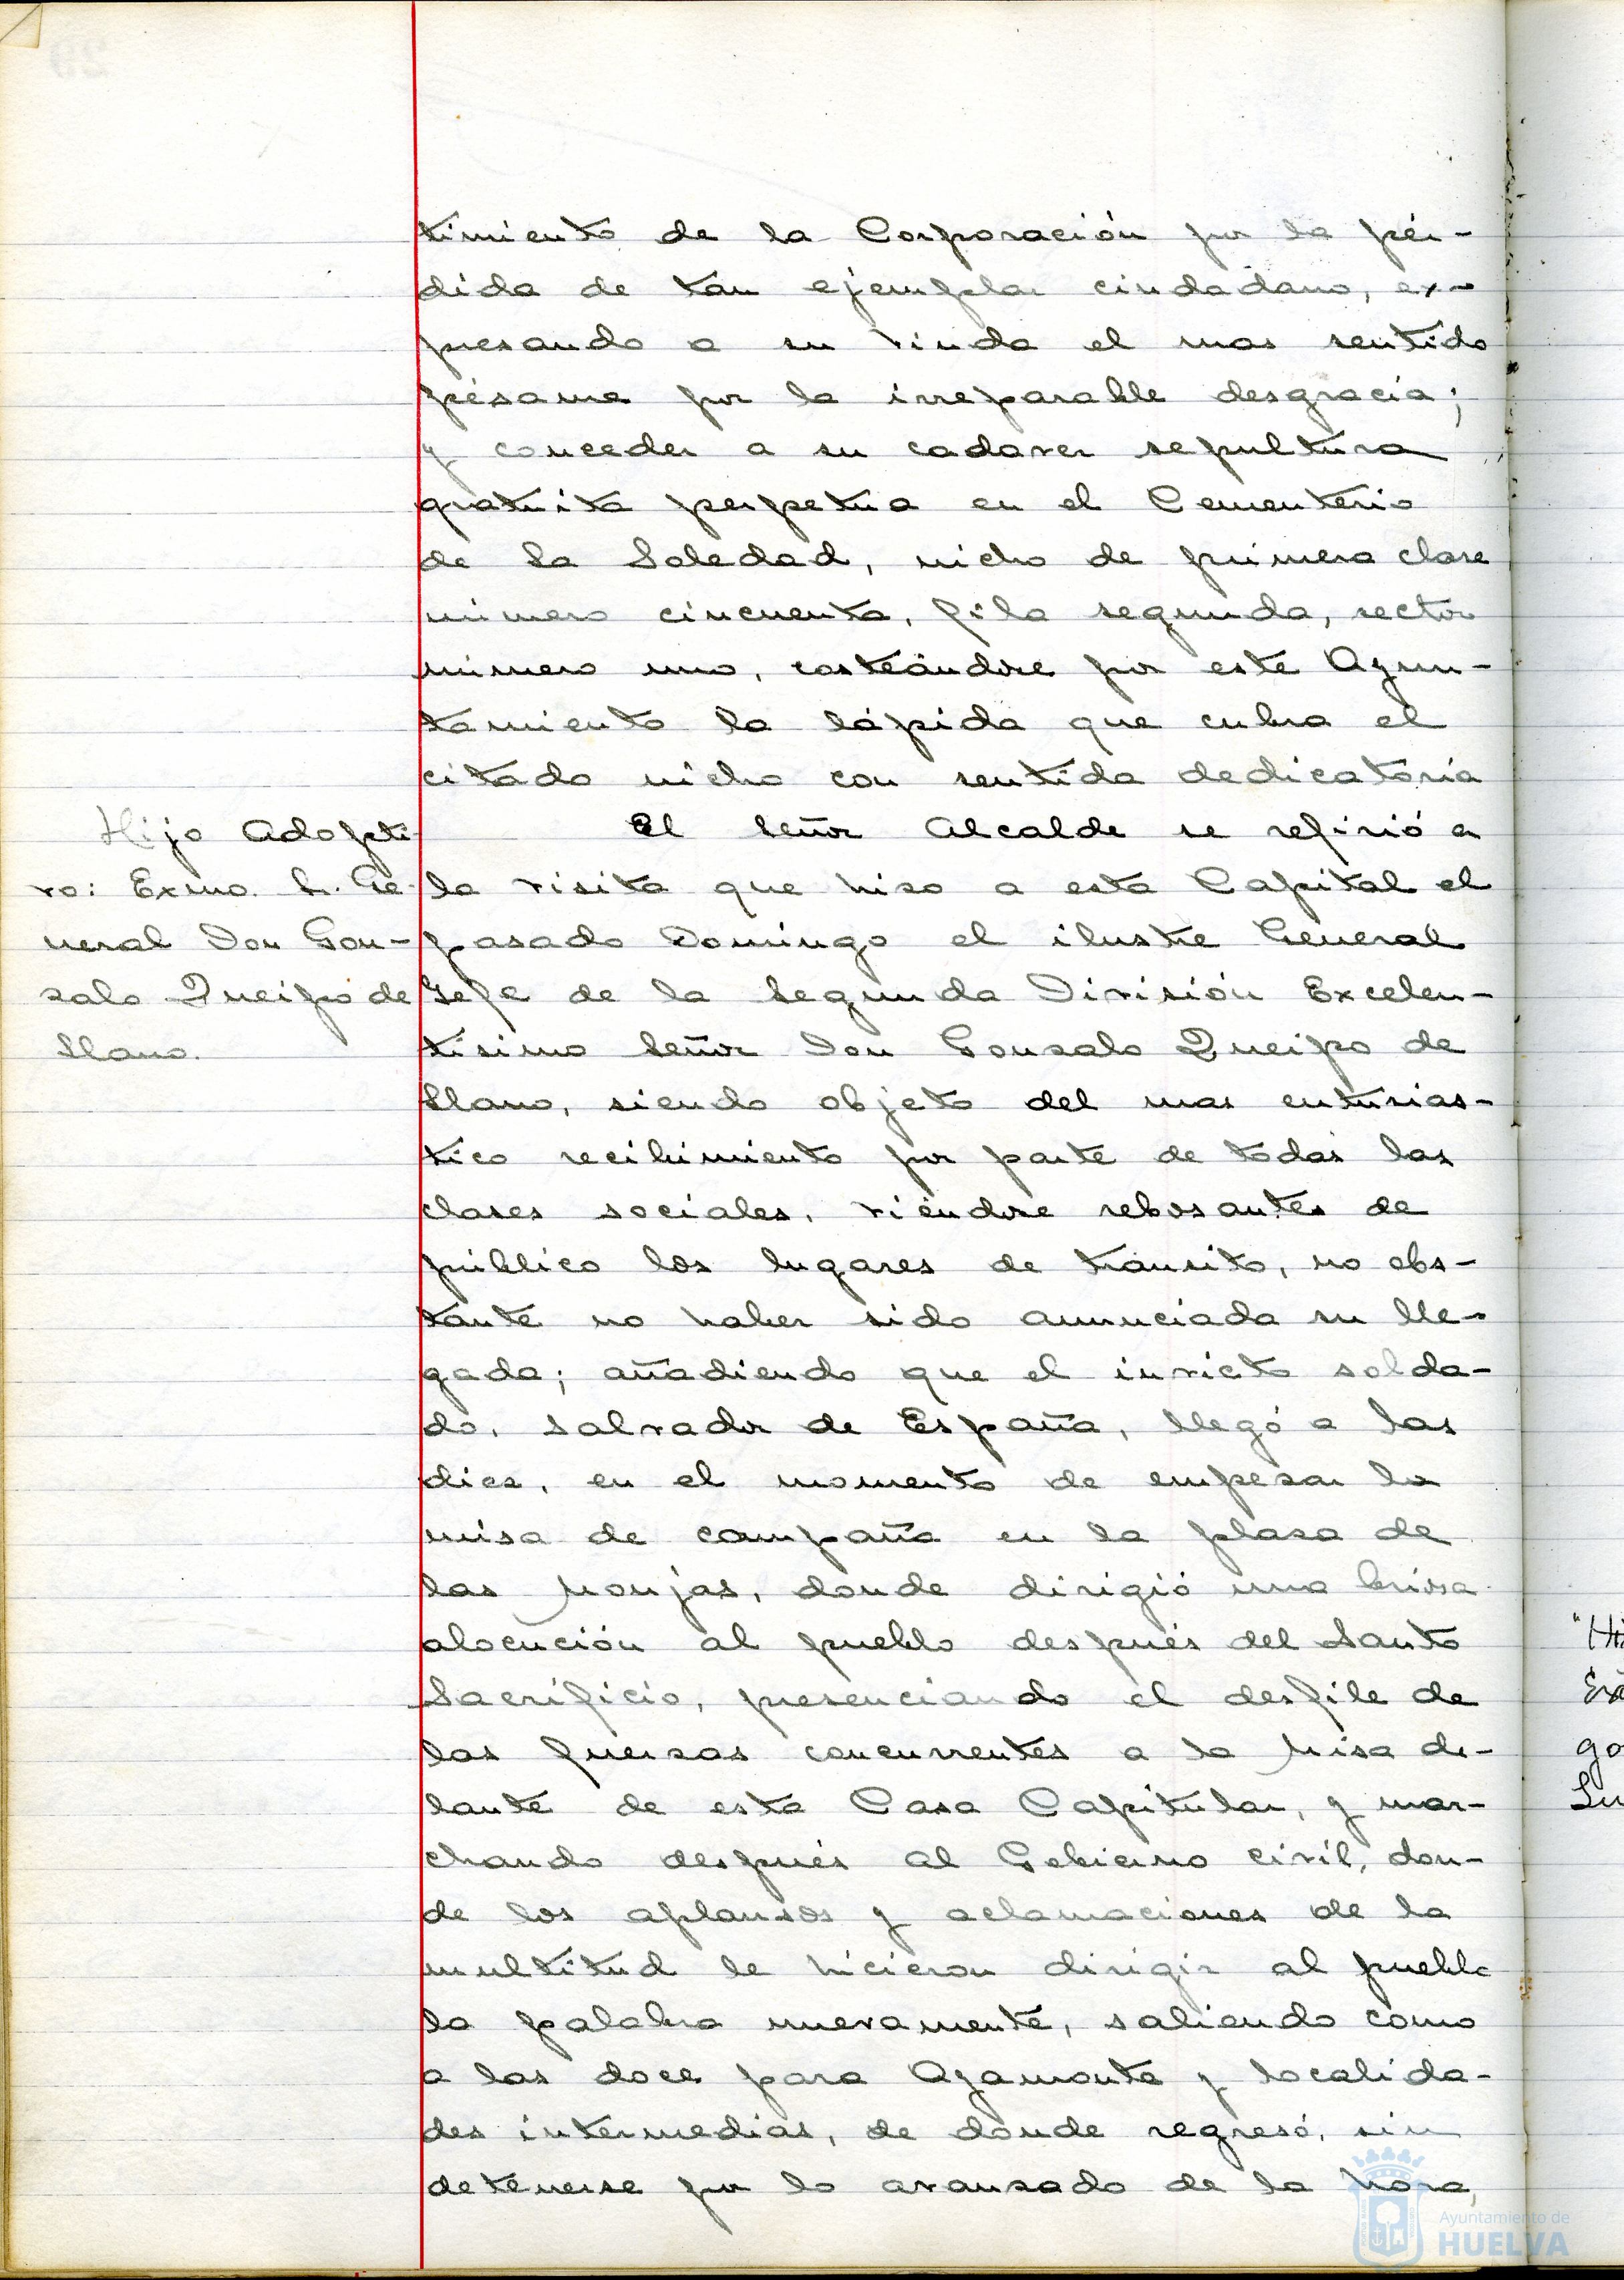 timiento de la Corporación por la pér-
dida de tan ejemplar ciudadano, ex-
presando a su viuda el mas sentido
pésame por la irreparable desgracia;
y conceder a su cadaver sepultura
gratuita perpetua en el Cementerio
de la Soledad, nicho de primera clase
número cincuenta, fila segunda, sector
número uno, costeándose por este Ayun-
tamiento la lápida que cubra el
citado nicho con sentida dedicatoria
El Señor Alcalde se refirió a
la visita que hizo a esta Capital el
pasado Domingo el ilustre General
Gefe de la Segunda División Excelen-
tísimo Señor Don Gonzalo Queipo de
Llano, siendo objeto del mas entusias-
tico recibimiento por parte de todas las
clases sociales, viéndose rebosantes de
público los lugares de tránsito, no obs-
tante no haber sido anunciada su lle-
gada; añadiendo que el invicto solda-
do, salvador de España, llegó a las
diez, en el momento de empezar la
misa de campaña en la plaza de
las Monjas, donde dirigió una briosa
alocución al pueblo después del Santo
Sacrificio, presenciando el desfile de
las fuerzas concurrentes a la Misa de-
lante de esta Casa Capitular, y mar-
chando después al Gobierno civil, don-
de los aplausos y aclamaciones de la
multitud le hicieron dirigir al pueblo
la palabra nuevamente, saliendo como
a las doce para Ayamonte y localida-
des intermedias, de donde regresó, sin
detenerse por lo avanzado de la hora,
Hijo Adopti
vo: Exmo. Sr. Ge-
neral Don Gon-
zalo Queipo de
Llano.
"Hi
Ex
go
Ayuntamiento de
HUELVA